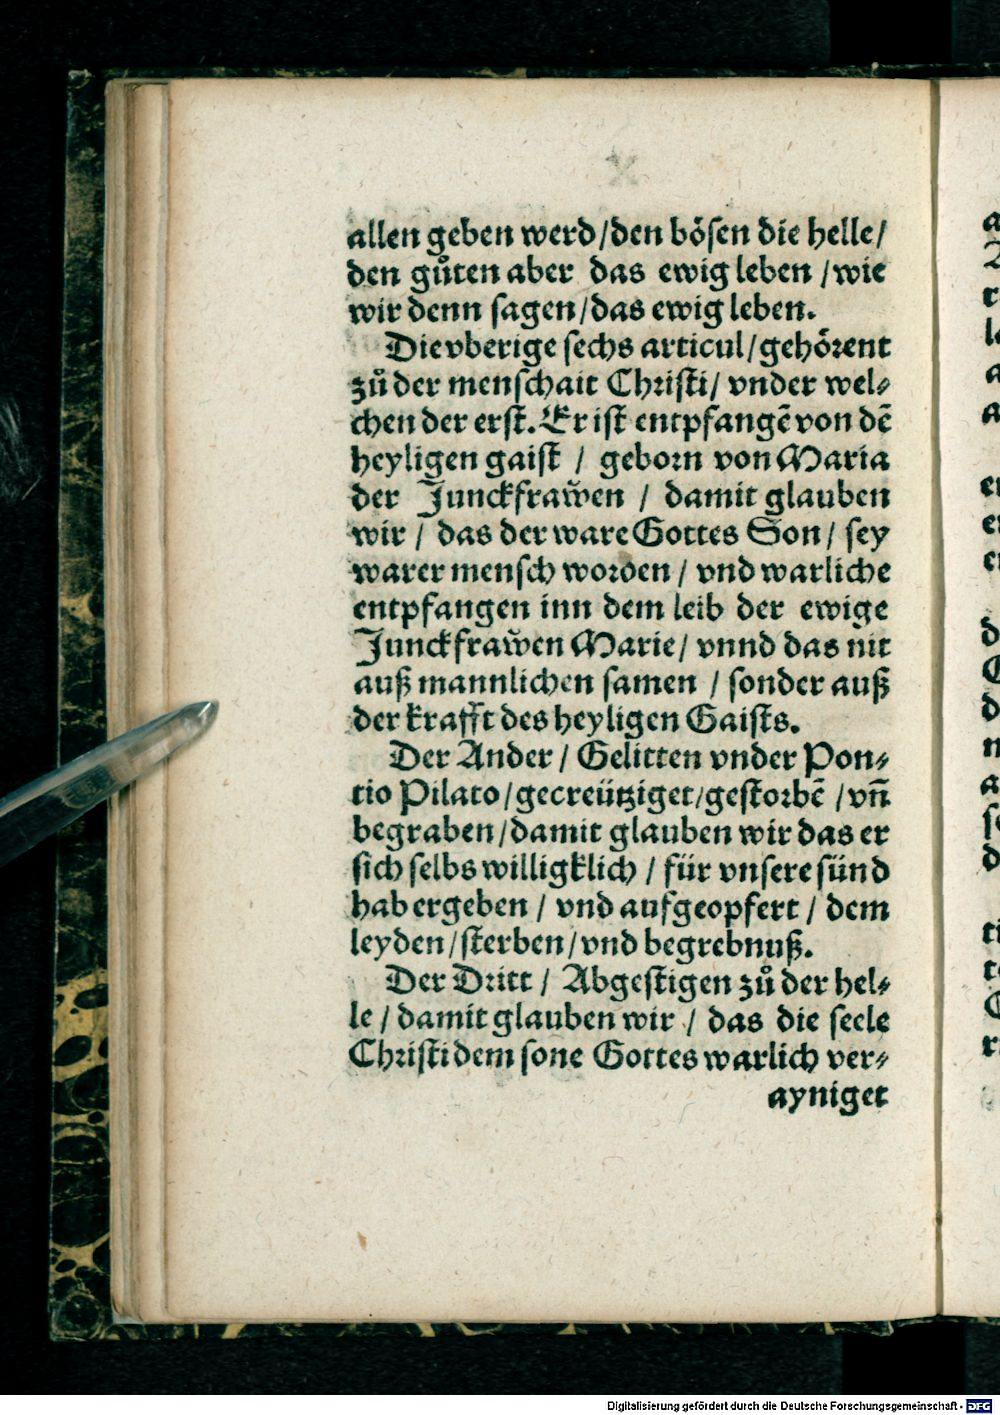 allen geben werd/den bösen die helle/
den gůten aber das ewig leben /wie
wir denn sagen/das ewig leben.
Die vberige sechs articul/gehörent
zů der menschait Christi/ vnder wel⸗
chen der erst. Er ist entpfangẽ von dẽ
heyligen gaist / geborn von Maria
der Junckfraw̃en / damit glauben
wir / das der ware Gottes Son/ sey
warer mensch worden / vnd warliche
entpfangen inn dem leib der ewige
Junckfraw̃en Marie/ vnnd das nit
auß mannlichen samen / sonder auß
der krafft des heyligen Gaists.
Der Ander / Gelitten vnder Pon⸗
tio Pilato/gecreütziget/gestorbẽ /vñ
begraben/damit glauben wir das er
sich selbs willigklich / für vnsere sünd
hab ergeben / vnd aufgeopfert / dem
leyden/sterben/vnd begrebnuß.
Der Dritt / Abgestigen zů der hel⸗
le / damit glauben wir / das die seele
Christi dem sone Gottes warlich ver⸗
ayniget
Digitalisierung gefördert durch die Deutsche Forschungsgemeinschaft - DFG